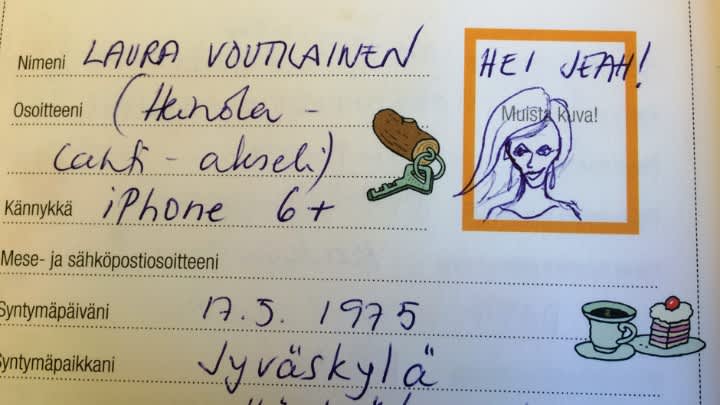 Nimeni LAURA VOUTILAINEN
HEI JEAH!
Muista kuva!
Osoitteeni (Heinola -
Lahti - akseli)
Kännykkä iPhone 6+
Mese- ja sähköpostiosoitteeni
Syntymäpäiväni 17.5. 1975
Syntymäpaikkani Jyväskylä